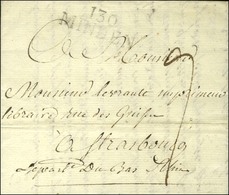 130
MINDEN
A Monsieur
Monsieur Levrault imprimeur
libraire rue des
à Strasbourg
Depart. Du Bas Rhin